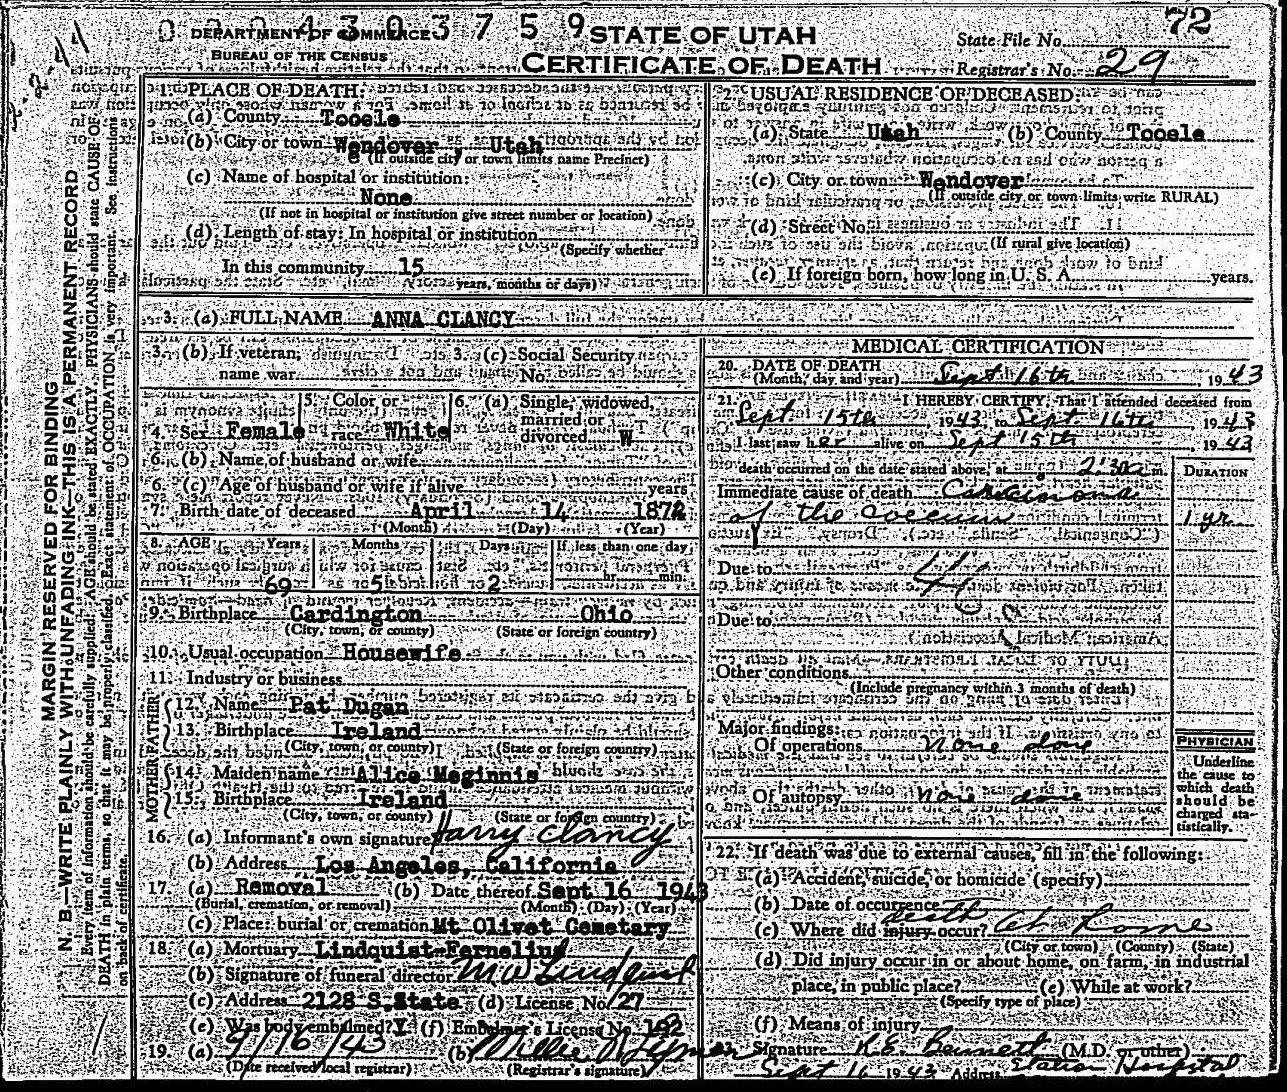 DEPARTMENT OF COMMERCE
BUREAU OF THE CENSUS
3 7 5 9
STATE OF UTAH
CERTIFICATE OF DEATH
72
State File No.
Registrar's No. 29
MARGIN RESERVED FOR BINDING
N. B.—WRITE PLAINLY WITH UNFADING INK—THIS IS A PERMANENT RECORD
Every item of information should be carefully supplied. AGE should be stated EXACTLY. PHYSICIANS should state CAUSE OF
DEATH in plain terms, so that it may be properly classified. Exact statement of OCCUPATION is very important. See instructions
on back of certificate.
1. PLACE OF DEATH:
(a) County Tooele
(b) City or town Wendover Utah
(If outside city or town limits name Precinct)
(c) Name of hospital or institution:
None
(If not in hospital or institution give street number or location)
(d) Length of stay: In hospital or institution
(Specify whether
In this community 15
years, months or days)
USUAL RESIDENCE OF DECEASED:
(a) State Utah (b) County Tooele
(c) City or town Wendover
(If outside city or town limits write RURAL)
(d) Street No.
(If rural give location)
(e) If foreign born, how long in U. S. A. years.
3. (a) FULL NAME ANNA CLANCY
3. (b) If veteran, name war
3. (c) Social Security No.
4. Sex Female
5. Color or race White
6. (a) Single, widowed, married or divorced W
6. (b) Name of husband or wife
6. (c) Age of husband or wife if alive years
7. Birth date of deceased April 14
(Month) (Day) (Year)
8. AGE Years Months Days If less than one day
69 5 2 hr. min.
9. Birthplace Cardington Ohio
(City, town, or county) (State or foreign country)
10. Usual occupation Housewife
11. Industry or business
FATHER
12. Name Pat Dugan
13. Birthplace Ireland
(City, town, or county) (State or foreign country)
MOTHER
14. Maiden name Alice Meginnis
15. Birthplace Ireland
(City, town, or county) (State or foreign country)
16. (a) Informant's own signature Harry Clancy
(b) Address Los Angeles, California
17. (a) Removal (b) Date thereof Sept 16 1943
(Burial, cremation, or removal) (Month) (Day) (Year)
(c) Place: burial or cremation Mt Olivet Cemetary
18. (a) Mortuary Lindquist-Fernelius
(b) Signature of funeral director M W Lindquist
(c) Address 2128 S. State (d) License No. 127
(e) Was body embalmed? Y (f) Embalmer's License No. 192
19. (a) 9/16/43 (b)
(Date received local registrar) (Registrar's signature)
MEDICAL CERTIFICATION
20. DATE OF DEATH
(Month, day and year) Sept 16th, 1943
21. I HEREBY CERTIFY, That I attended deceased from
Sept 15th, 1943, to Sept. 16th, 1943
I last saw her alive on Sept 15th 1943
death occurred on the date stated above, at 2:30 a m.
DURATION
Immediate cause of death Carcinoma
of the Coecum 1 yr.
Due to
Due to
Other conditions
(Include pregnancy within 3 months of death)
Major findings:
Of operations none done
Of autopsy none done
PHYSICIAN
Underline
the cause to
which death
should be
charged sta-
tistically.
22. If death was due to external causes, fill in the following:
(a) Accident, suicide, or homicide (specify)
(b) Date of occurrence
death
(c) Where did injury occur? At Home
(City or town) (County) (State)
(d) Did injury occur in or about home, on farm, in industrial
place, in public place? (e) While at work?
(Specify type of place)
(f) Means of injury
Signature R.E. Bennett (M.D. or other)
Sept 16 1943 Address Station Hospital